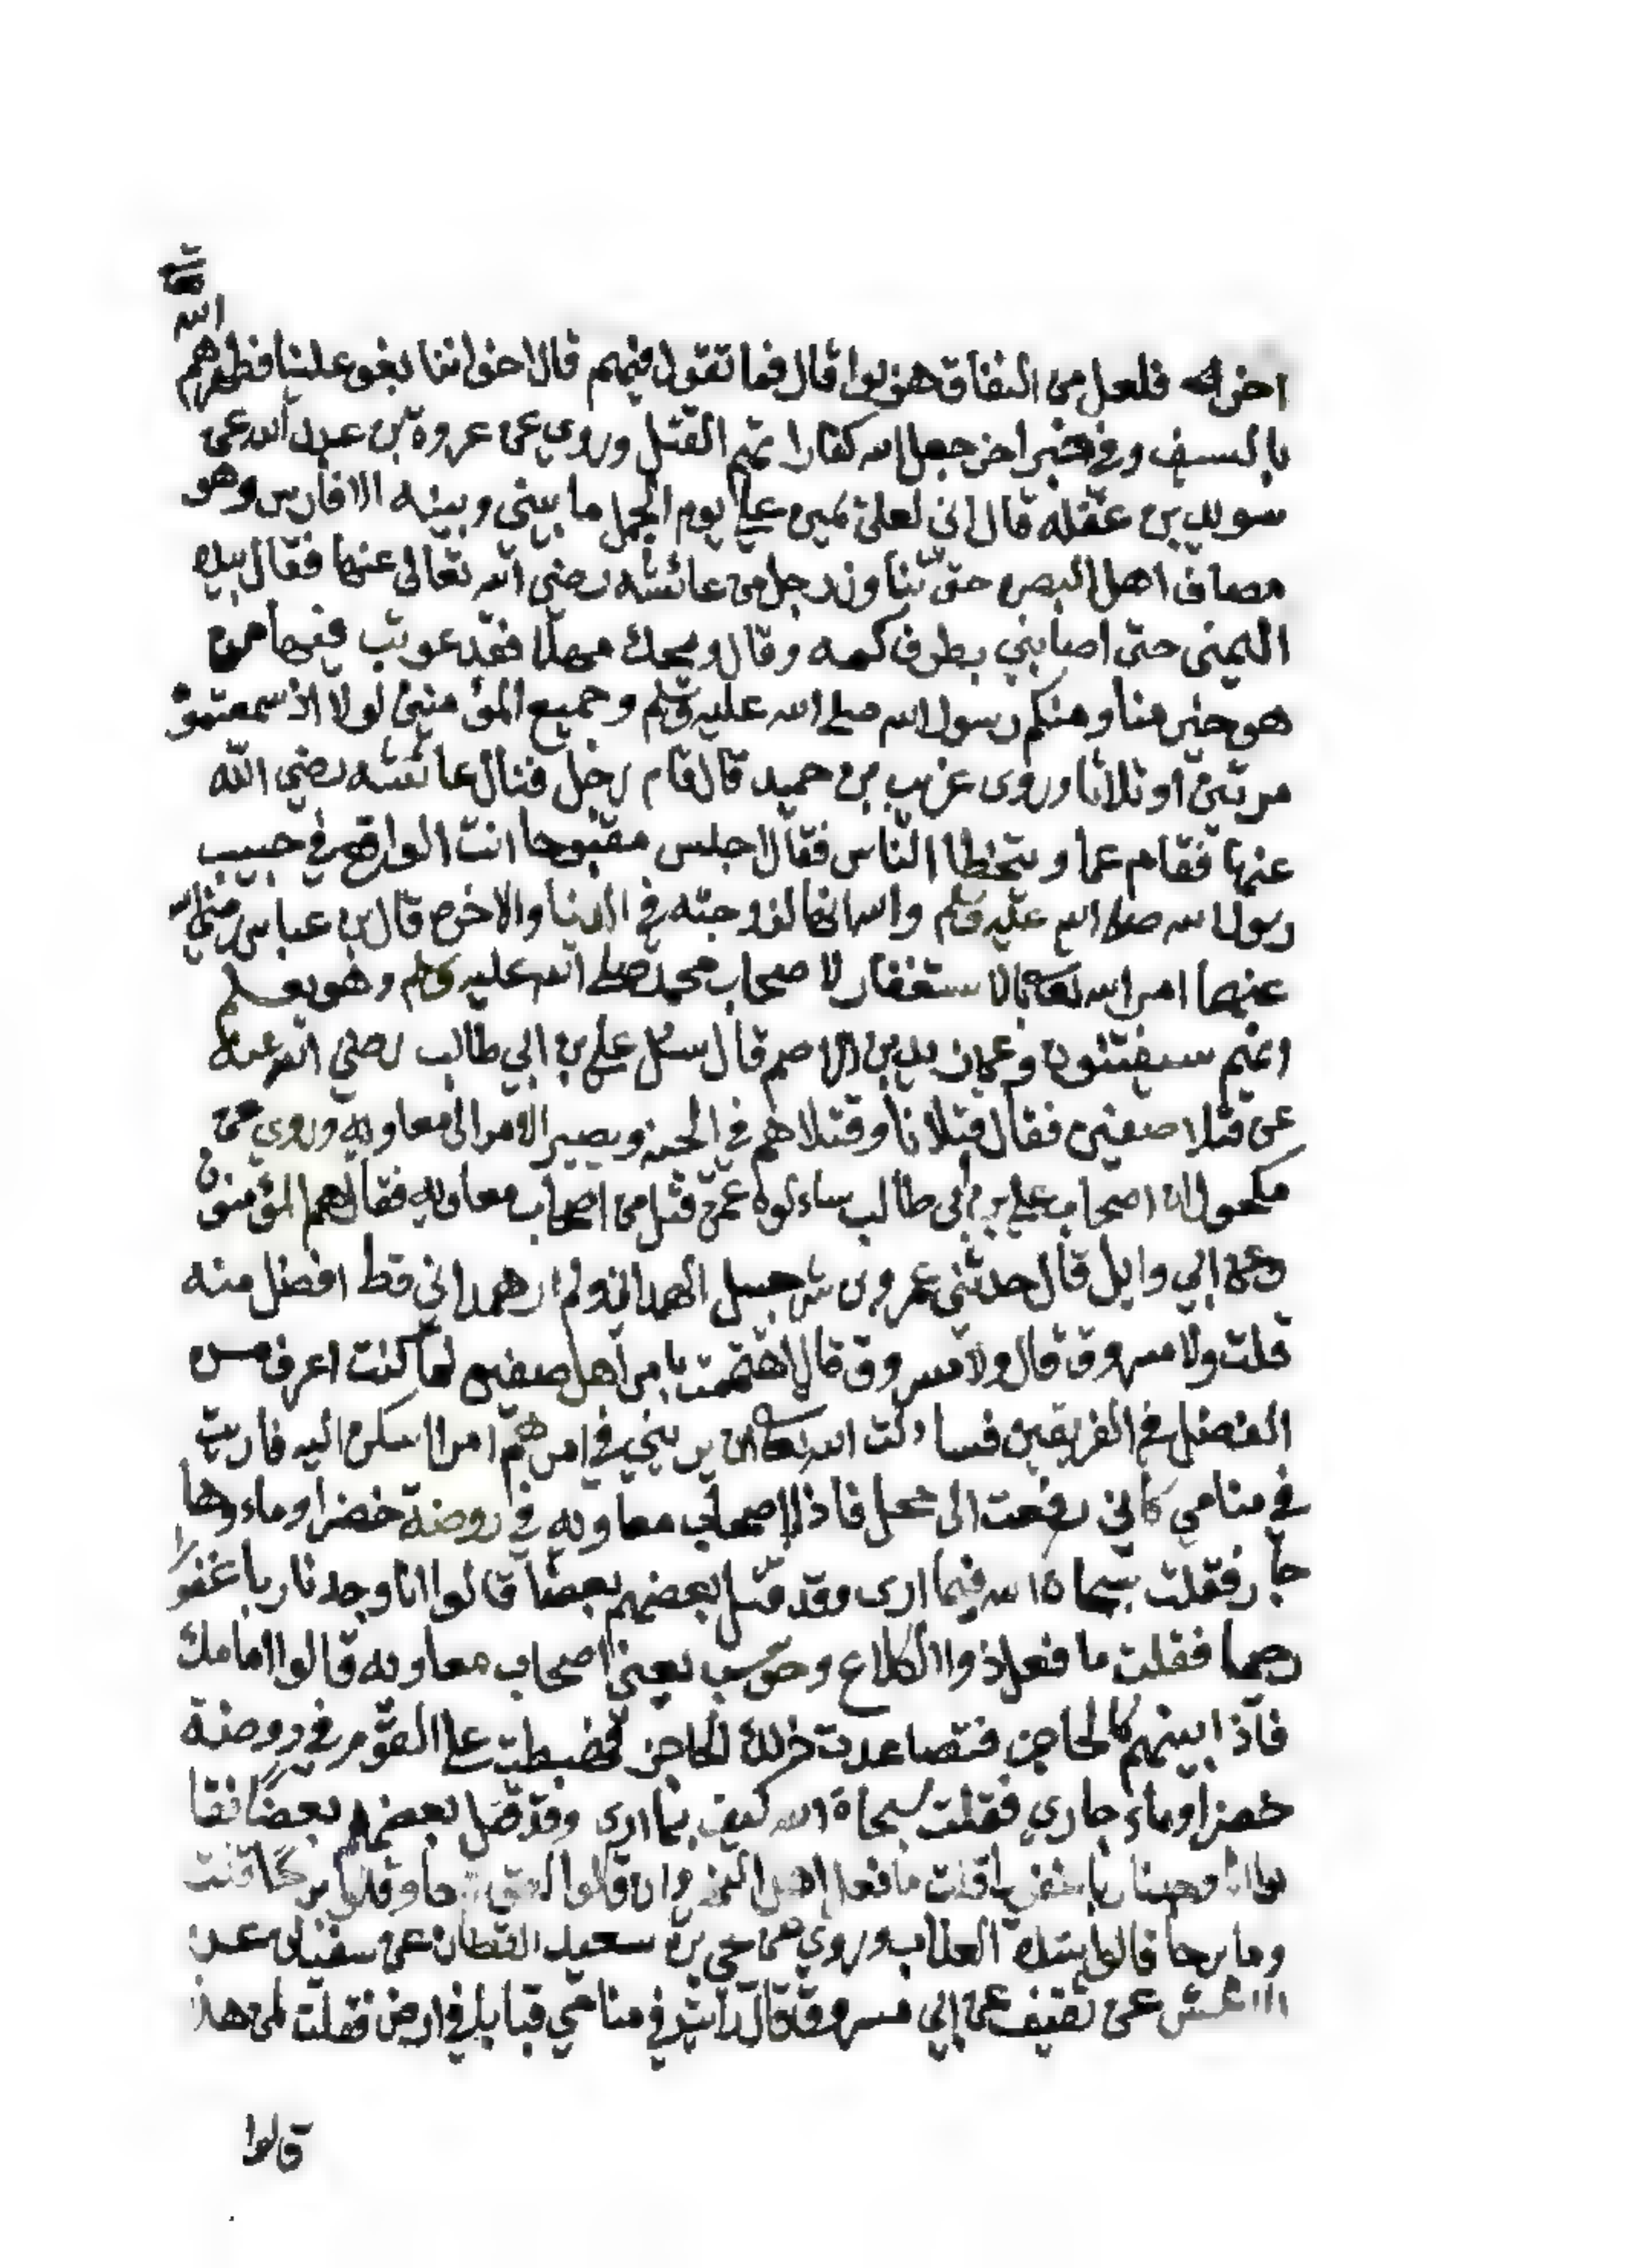 الله
اخراه فلعل من النفاق هربوا قال فما تقول فيهم قال اخواننا بغو علينا فطهرهم
بالسيف وفي خبر اخر جعل الله كفارا تهم القتل وروي عن عروة بن عبد الله عن
سويد بن غفله قال اني لعلى يمين علي يوم الجمل ما بيني وبينه الا فارس وهو
مصاف اهل البصره حتى تناول رجل من عائشه رضي الله تعالى عنها فقال بيده
اليمنى حتى اصابني بطرف كمه وقال ويحك مهلا فقد عوتب فيها من
هو خير منا ومنكم رسول الله صلى الله عليه وسلم وجميع المؤمنين لولا اذ سمعتموه
مرتين او ثلاثا وروى عريب بن حميد قال قام رجل فنال عائشه رضي الله
عنها فقام عما ويتخطا الناس فقال اجلس مقبوحا انت الواقع في حبيب
رسول الله صلى الله عليه وسلم والله انها لزوجته في الدنيا والاخره قال بن عباس رضي الله
عنهما امر الله تعالى بالاستغفار لاصحاب محمد صلى الله عليه وسلم وهو يعلم
انهم سيفتنون وعن يزيد بن الاصم قال سئل علي بن ابي طالب رضي الله عنه
عن قتلا صفين فقال قتلانا وقتلاهم في الجنه ويصير الامر الى معاويه وروي عن
مكحول ان اصحاب علي بن ابي طالب ساءلوه عمن قتل من اصحاب معاويه فقال هم المؤمنون
وعن ابي وايل قال حدثني عمرو بن شرحبيل الهمداني ولم ار همداني قط افضل منه
قلت ولا مسروق قال ولا مسروق قال اهتممت بامر اهل صفين لما كنت اعرف من
الفضل في الفريقين فساءلت الله تعالى ان يريني في امرهم امرا اسكن اليه فاريت
في منامي كاني رفعت الى محل فاذا اصحاب معاويه في روضة خضرا وماءوها
جار فقلت سبحان الله فيما ارى وقد قتل بعضهم بعضا قالوا انا وجدنا ربا غفورا
رحيما فقلت ما فعل ذوا الكلاع وحوشب يعني اصحاب معاويه قالوا امامك
فاذا بينهم كالحاجز فتصاعدت ذلك الحاجز فضبطت على القوم في روضة
خضرا وماء جاري فقلت سبحان الله كيف بما ارى وقد قتل بعضهم بعضا فقا
لوا انا وجدنا ربا غفورا قلت ما فعل اهل النهروان قالوا لقوا برحا قلت
وما برحا قالوا شدة العذاب وروي عن يحي بن سعيد القطان عن سفيان عن
الاعمش عن ثقيف عن ابي مسروق قال رايت في منامي قبابا في ارض فقلت لمن هذا
قالوا